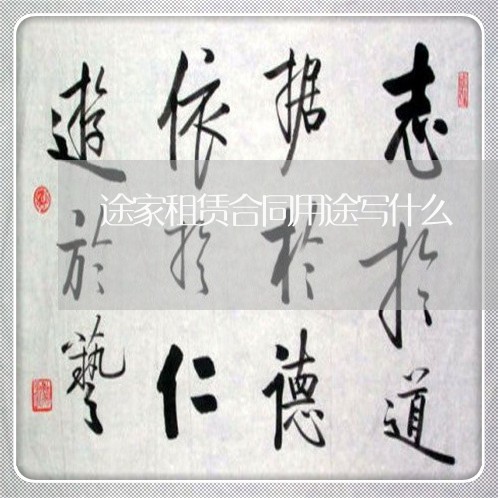 志於道
据於德
依於仁
遊於藝
途家租赁合同用途写什么